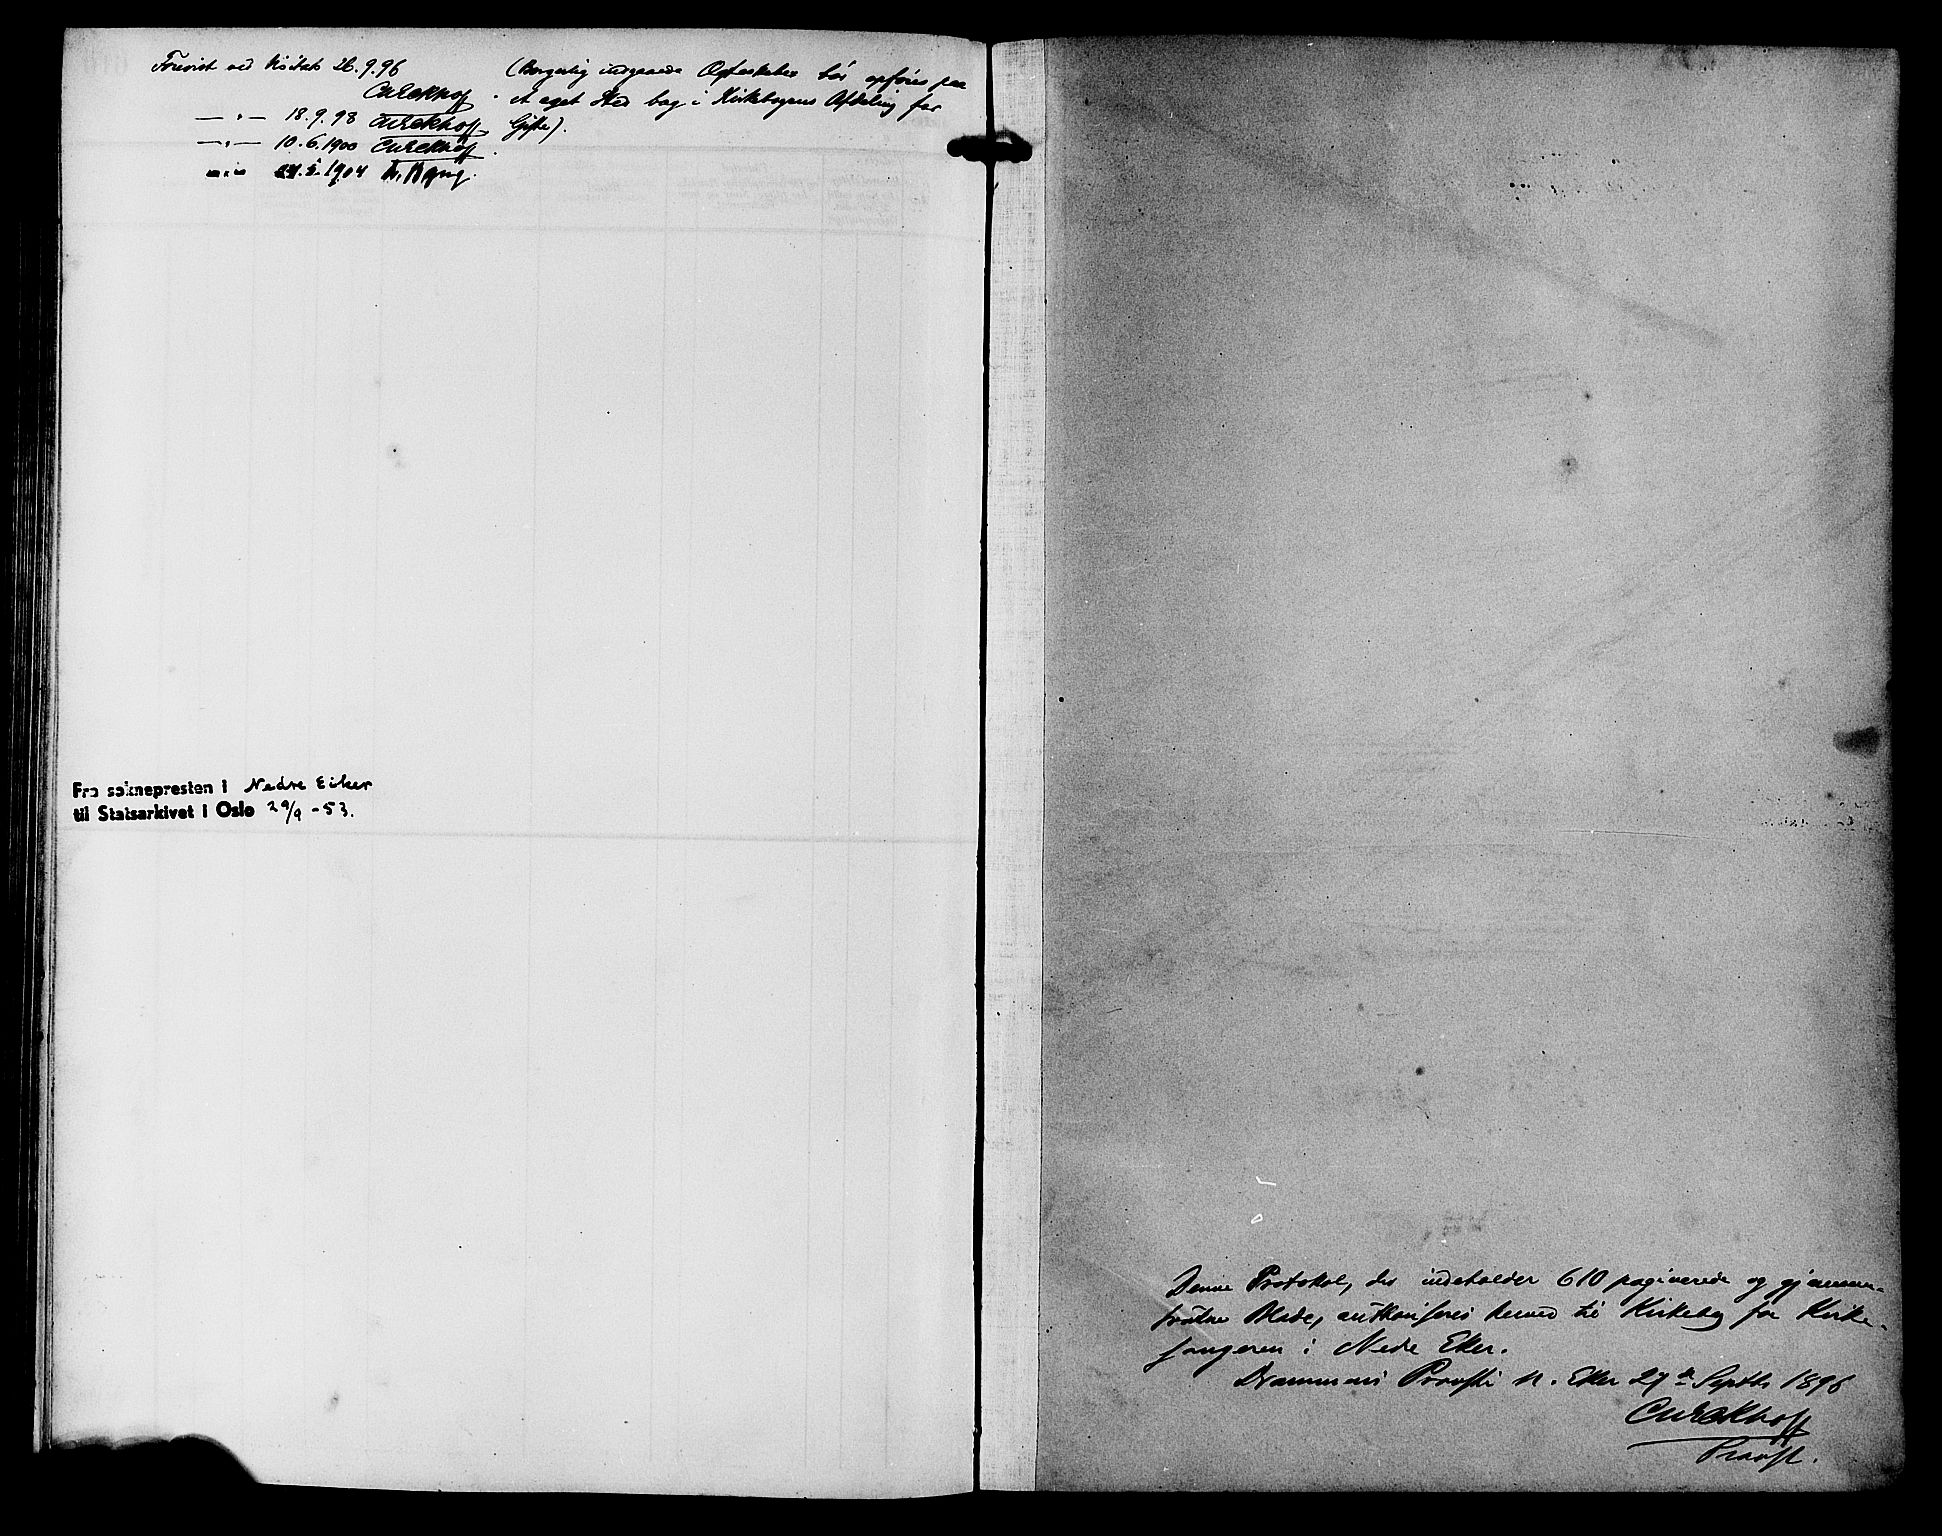 Forevist ved Visitats 26.9.96
CMEckhoff.
— " — 18.9.98 CMEckhoff
— " — 10.6.1900 CMEckhoff.
— " — 1904
(Borgerlig indgaaede Ægteskaber bør opføres paa
et eget Sted bag i Kirkebogens Afdeling for
Gifte).
Fra soknepresten i Nedre Eiker
til Statsarkivet i Oslo 29/9 - 53.
Denne Protokol, der indeholder 610 paginerede og gjennem-
trukne Blade, authoriseres herved til Kirkebog for Kirke-
sangeren i Nedre Eker.
Drammens Provsti N. Eker 27de Septbr 1896
CMEckhoff
Provst.